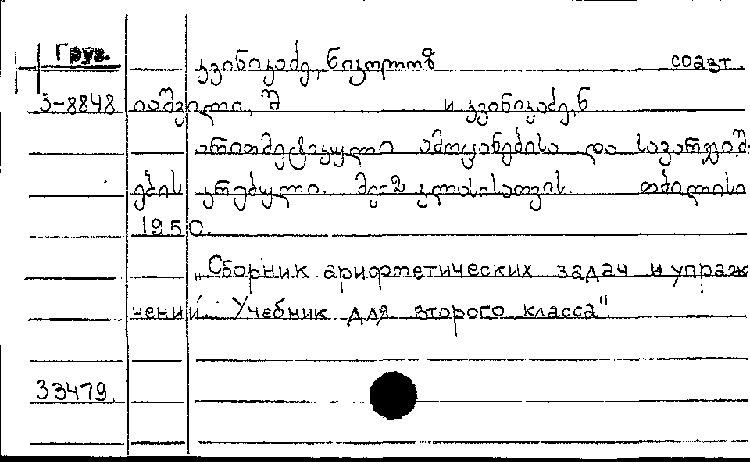 Груз. კვინიკაძე, ნიკოლოზ соавт.
3-8848 იაშვილი, შ и კვინიკაძე, ნ
არითმეტიკული ამოცანებისა და სავარჯიშო-
ების კრებული. მე-2 კლასისათვის. თბილისი
1950.
„Сборник арифметических задач и упраж
нений. Учебник для второго класса"
33479.